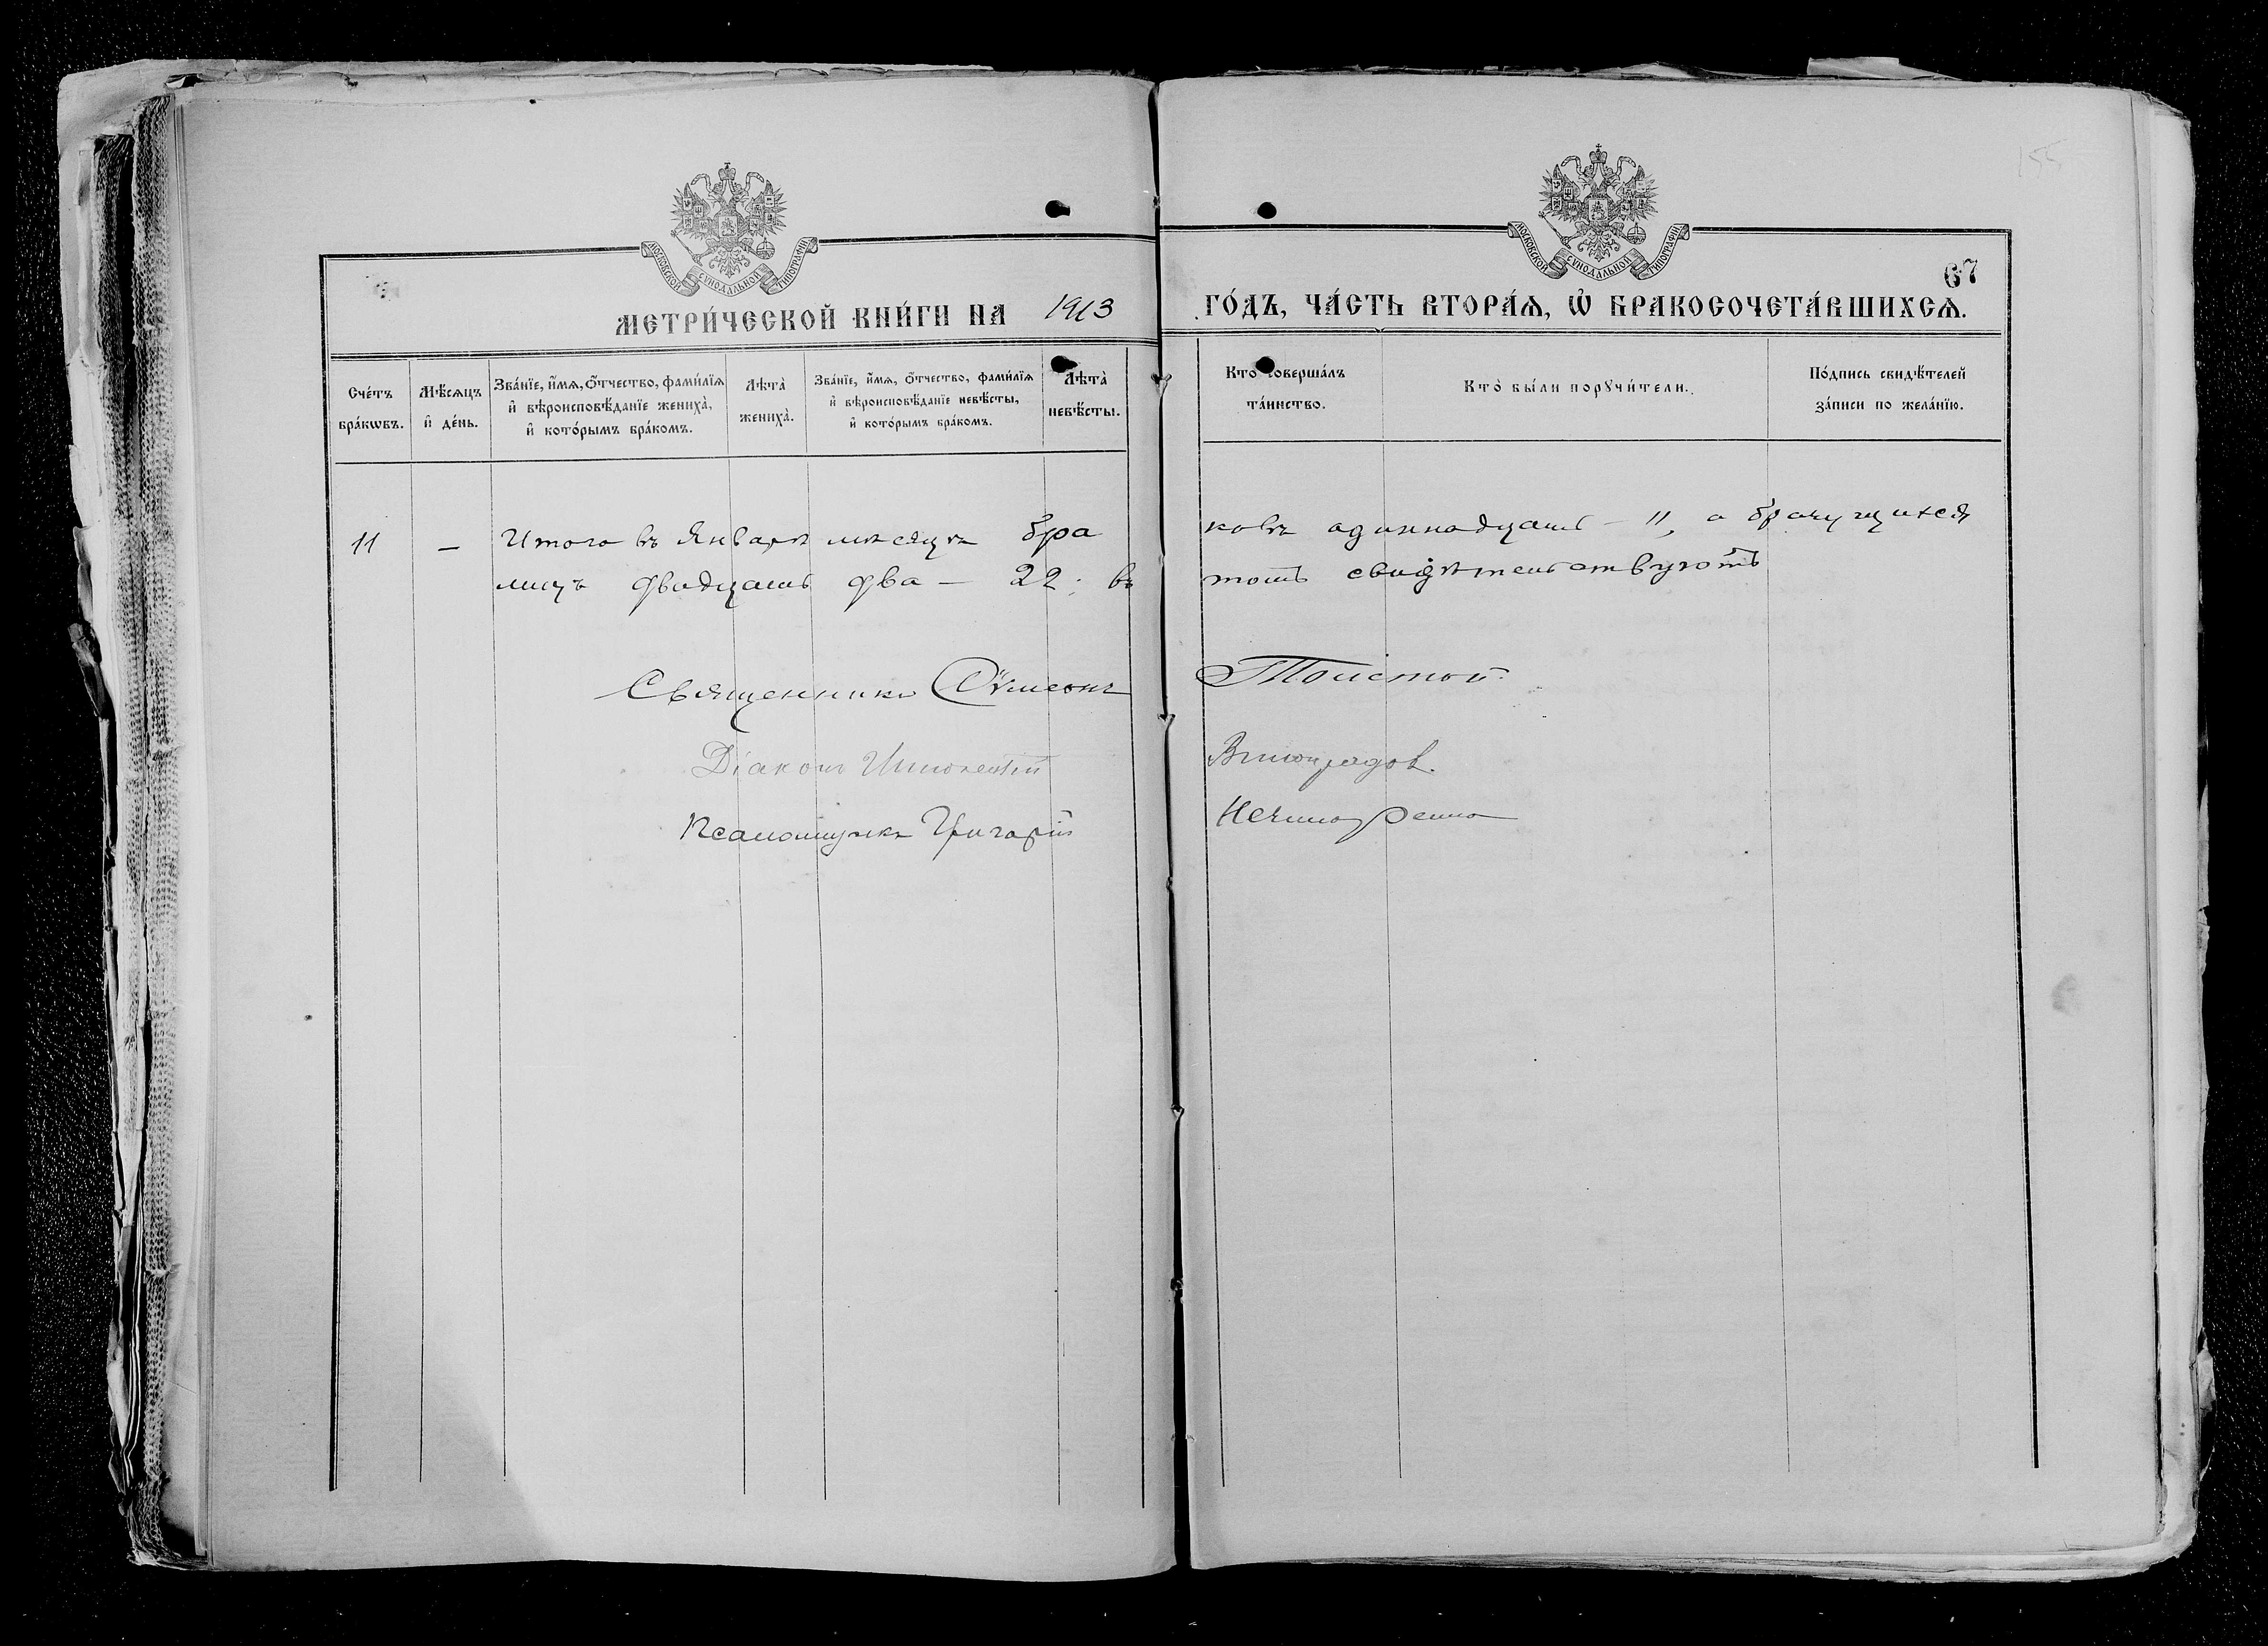 МОСКОВСКОЙ СѴНОДАЛЬНОЙ ТИПОГРАФІИ
МОСКОВСКОЙ СѴНОДАЛЬНОЙ ТИПОГРАФІИ
155
67
МЕТРИ́ЧЕСКОЙ КНИ́ГИ НА 1913 ГО́ДЪ, ЧА́СТЬ ВТОРА́Ѧ, Ѽ БРАКОСОЧЕТА́ВШИХСѦ.
Сче́тъ бра́кѡвъ.
Мѣ́сѧцъ и҆ де́нь.
Зва́нїе, и҆́мѧ, ѻ҆́тчество, фами́лїѧ
и҆ вѣроисповѣ́данїе жениха̀,
и҆ кото́рымъ бра́комъ.
Лѣта̀ жениха̀.
Зва́нїе, и҆́мѧ, ѻ҆́тчество, фами́лїѧ
и҆ вѣроисповѣ́данїе невѣ́сты,
и҆ кото́рымъ бра́комъ.
Лѣта̀ невѣ́сты.
Кто̀ соверша́лъ
та́инство.
Кто̀ бы́ли порꙋчи́тели.
По́дпись свидѣ́телей
за́писи по жела́нїю.
11 – Итого въ Январѣ мѣсяцѣ браковъ одиннадцать – 11, а брачущихся
лицъ двадцать два – 22; въ томъ свидѣтельствуютъ
Священникъ Сѵмеонъ Толстой.
Діаконъ Иннокентій Виноградов.
Псаломщикъ Григорій